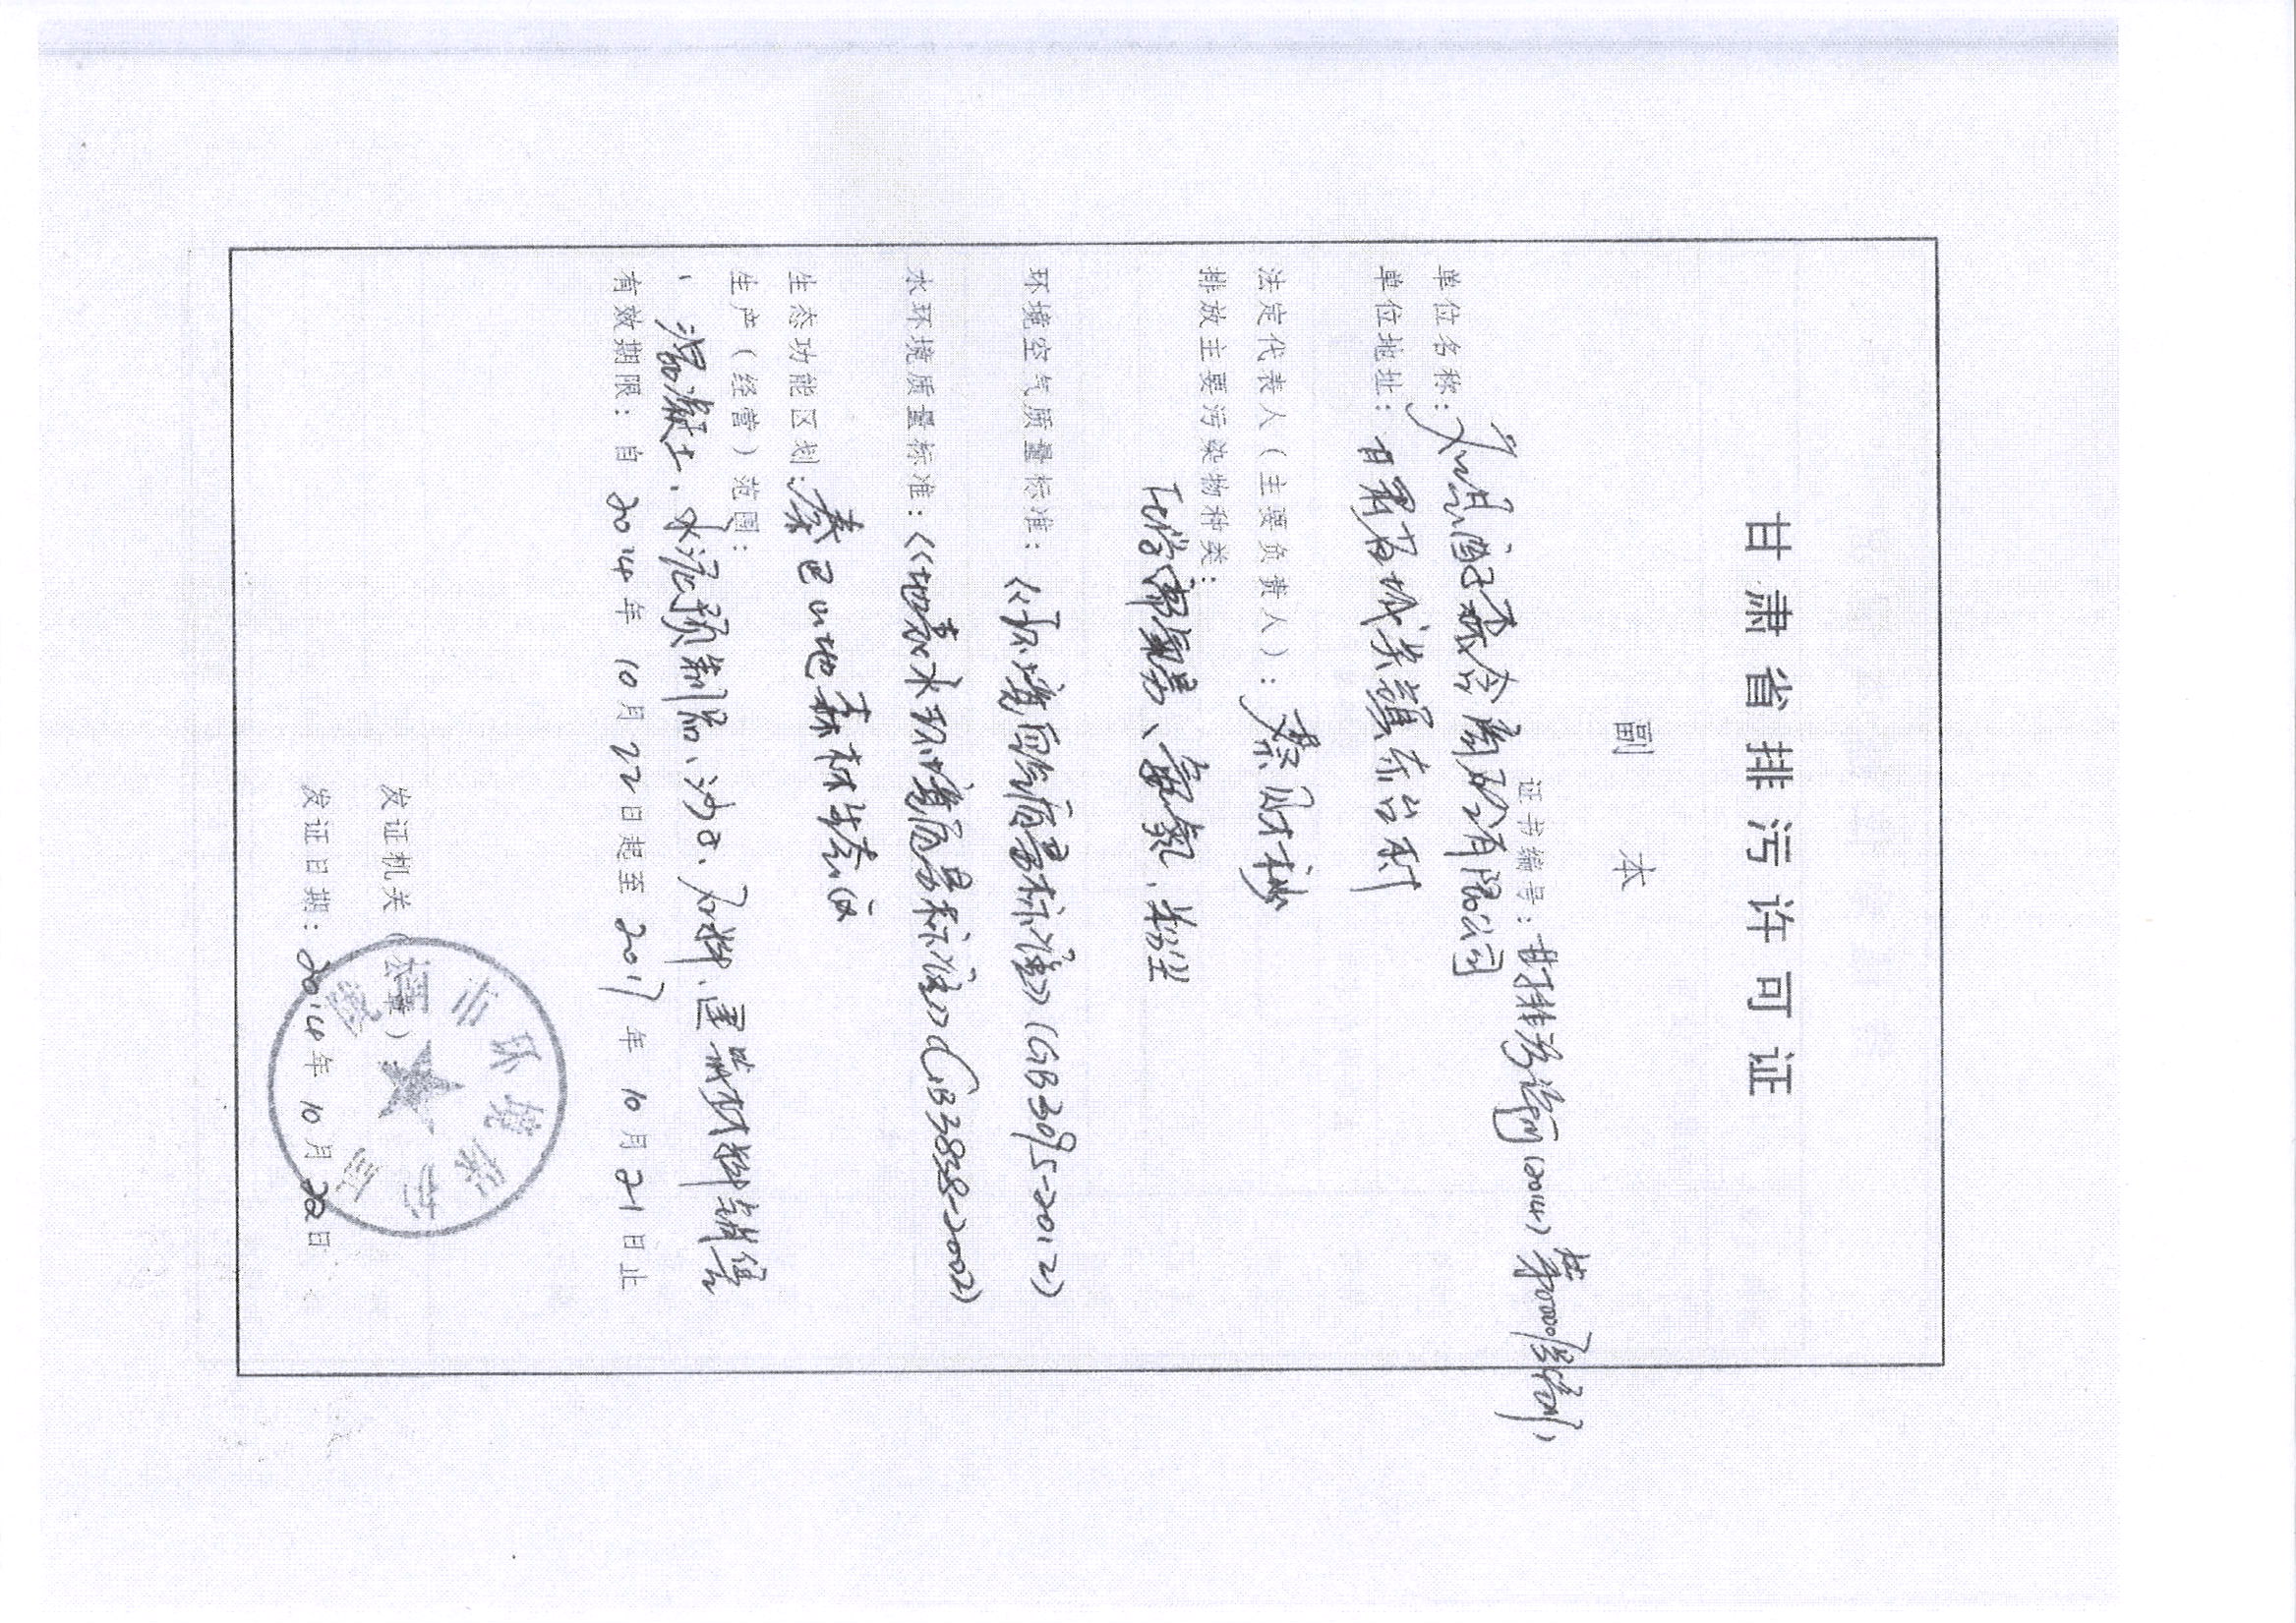 甘肃省排污许可证
副本
证书编号：甘排污许可(2014)第
单位名称：商砼有限公司
单位地址：甘肃省城关镇东台村
法定代表人（主要负责人）：蔡
排放主要污染物种类：
化学需氧量、氨氮、粉尘
环境空气质量标准：《环境空气质量标准》(GB3095-2012)
水环境质量标准：《地表水环境质量标准》(GB3838-2002)
生态功能区划：秦巴山地森林生态区
生产（经营）范围：
混凝土、水泥预制品、沙石、石料、建筑材料销售
有效期限：自2014年10月22日起至2017年10月21日止
发证机关（公章）：
发证日期：2014年10月22日
市环境保护局